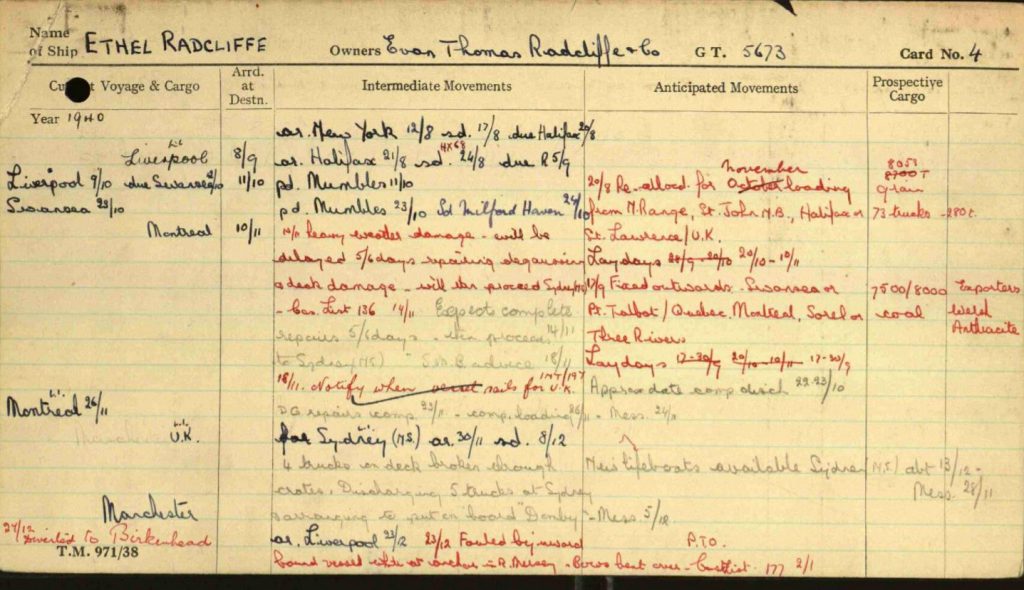 Name of Ship ETHEL RADCLIFFE Owners Evan Thomas Radcliffe & Co G T. 5673 Card No. 4
Current Voyage & Cargo Arrd. at Destn. Intermediate Movements Anticipated Movements Prospective Cargo
Year 1940
ar. New York 12/8 sd. 17/8 due Halifax 20/8
Liverpool 8/9 ar. Halifax 21/8 HX68 sd. 24/8 due R 5/9
November 8053
Liverpool 9/10 due Swansea 11/10 pd. Mumbles 11/10 20/8 Re-allocd for October loading 8700T grain
Swansea 23/10 pd. Mumbles 23/10 Sd Milford Haven 24/10 from N. Range, St. John N.B., Halifax or 73 trucks - 280 t.
Montreal 10/11 10/11 heavy weather damage - will be St. Lawrence / U.K.
delayed 5/6 days repairing degaussing Laydays 20/10 - 10/11
& deck damage - will then proceed Sydney (NS) 17/9 Fixed outwards Swansea or 7500/8000 Exporters
- Cas. List 136 14/11 Expects complete Pt. Talbot / Quebec, Montreal, Sorel or coal Weld
repairs 5/6 days - then proceed 14/11 Three Rivers Anthracite
to Sydney (NS) advice 18/11 Laydays 17-30/9 20/10-10/11 17-30/9
18/11. Notify when vessel sails for U.K. Approx date comp disch 22-23/10
Montreal 26/11 DG repairs comp. 23/11 - comp. loading 26/11 - Mess. 24/11
U.K. for Sydney (N.S.) ar. 30/11 sd. 8/12
4 trucks on deck broken through New lifeboats available Sydney (N.S.) abt 13/12 -
crates. Discharging 5 trucks at Sydney Mess. 28/11
Manchester arranging to put on board "Danby" - Mess. 5/12
27/12 Diverted to Birkenhead ar. Liverpool 22/12 23/12 Fouled by inward P.T.O.
T.M. 971/38 bound vessel while at anchor in R. Mersey - Bows bent over - Cas. List 177 2/1